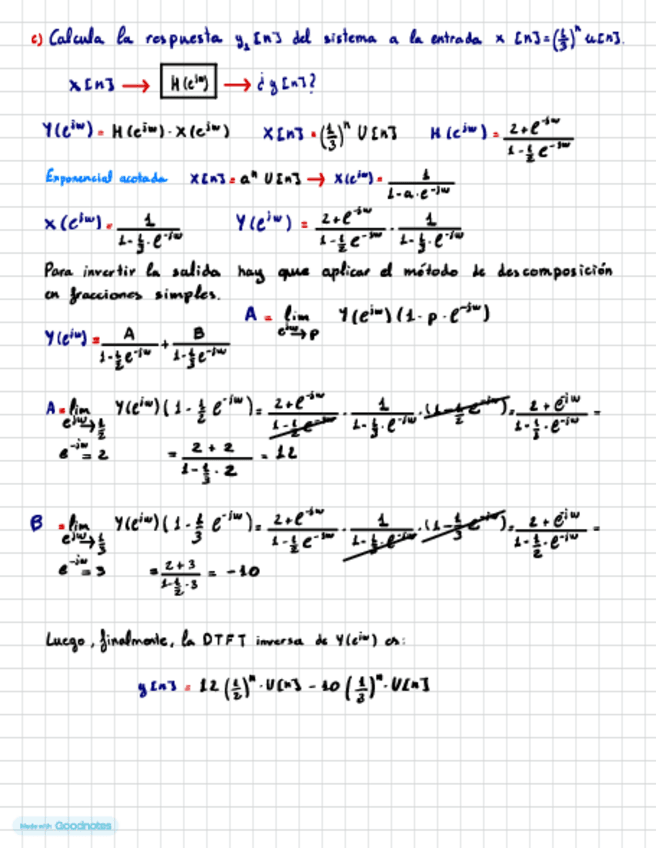 c) Calcula la respuesta y₁[n] del sistema a la entrada x[n]=(1/3)ⁿ u[n].
x[n] → H(e^jω) → ¿y[n]?
Y(e^jω) = H(e^jω) · X(e^jω)   X[n] = (1/3)ⁿ U[n]   H(e^jω) = (2+e^-jω)/(1-1/2 e^-jω)
Exponencial acotada   X[n] = aⁿ U[n] → X(e^jω) = 1/(1-a·e^-jω)
X(e^jω) = 1/(1-1/3·e^-jω)   Y(e^jω) = (2+e^-jω)/(1-1/2 e^-jω) · 1/(1-1/3·e^-jω)
Para invertir la salida hay que aplicar el método de descomposición
en fracciones simples.
A = lim e^jω→p Y(e^jω)(1-p·e^-jω)
Y(e^jω) = A/(1-1/2 e^-jω) + B/(1-1/3 e^-jω)
A = lim e^jω→1/2 Y(e^jω)(1-1/2 e^-jω) = (2+e^-jω)/(1-1/2 e^-jω) · 1/(1-1/3·e^-jω) · (1-1/2 e^-jω) = (2+e^-jω)/(1-1/3·e^-jω) =
e^-jω = 2   = (2+2)/(1-1/3·2) = 12
B = lim e^jω→1/3 Y(e^jω)(1-1/3 e^-jω) = (2+e^-jω)/(1-1/2 e^-jω) · 1/(1-1/3·e^-jω) · (1-1/3 e^-jω) = (2+e^-jω)/(1-1/2·e^-jω) =
e^-jω = 3   = (2+3)/(1-1/2·3) = -10
Luego, finalmente, la DTFT inversa de Y(e^jω) es:
y[n] = 12 (1/2)ⁿ · U[n] - 10 (1/3)ⁿ · U[n]
Made with Goodnotes